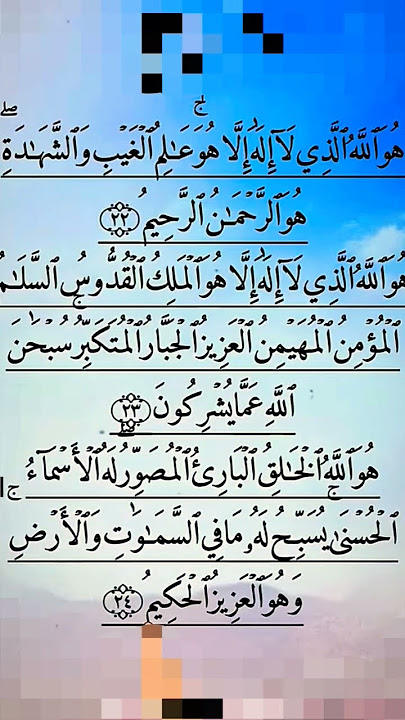 هُوَ ٱللَّهُ ٱلَّذِي لَآ إِلَٰهَ إِلَّا هُوَ عَٰلِمُ ٱلْغَيْبِ وَٱلشَّهَٰدَةِ
هُوَ ٱلرَّحْمَٰنُ ٱلرَّحِيمُ ٢٢
هُوَ ٱللَّهُ ٱلَّذِي لَآ إِلَٰهَ إِلَّا هُوَ ٱلْمَلِكُ ٱلْقُدُّوسُ ٱلسَّلَٰمُ
ٱلْمُؤْمِنُ ٱلْمُهَيْمِنُ ٱلْعَزِيزُ ٱلْجَبَّارُ ٱلْمُتَكَبِّرُ سُبْحَٰنَ
ٱللَّهِ عَمَّا يُشْرِكُونَ ٢٣
هُوَ ٱللَّهُ ٱلْخَٰلِقُ ٱلْبَارِئُ ٱلْمُصَوِّرُ لَهُ ٱلْأَسْمَآءُ
ٱلْحُسْنَىٰ يُسَبِّحُ لَهُۥ مَا فِي ٱلسَّمَٰوَٰتِ وَٱلْأَرْضِ
وَهُوَ ٱلْعَزِيزُ ٱلْحَكِيمُ ٢٤